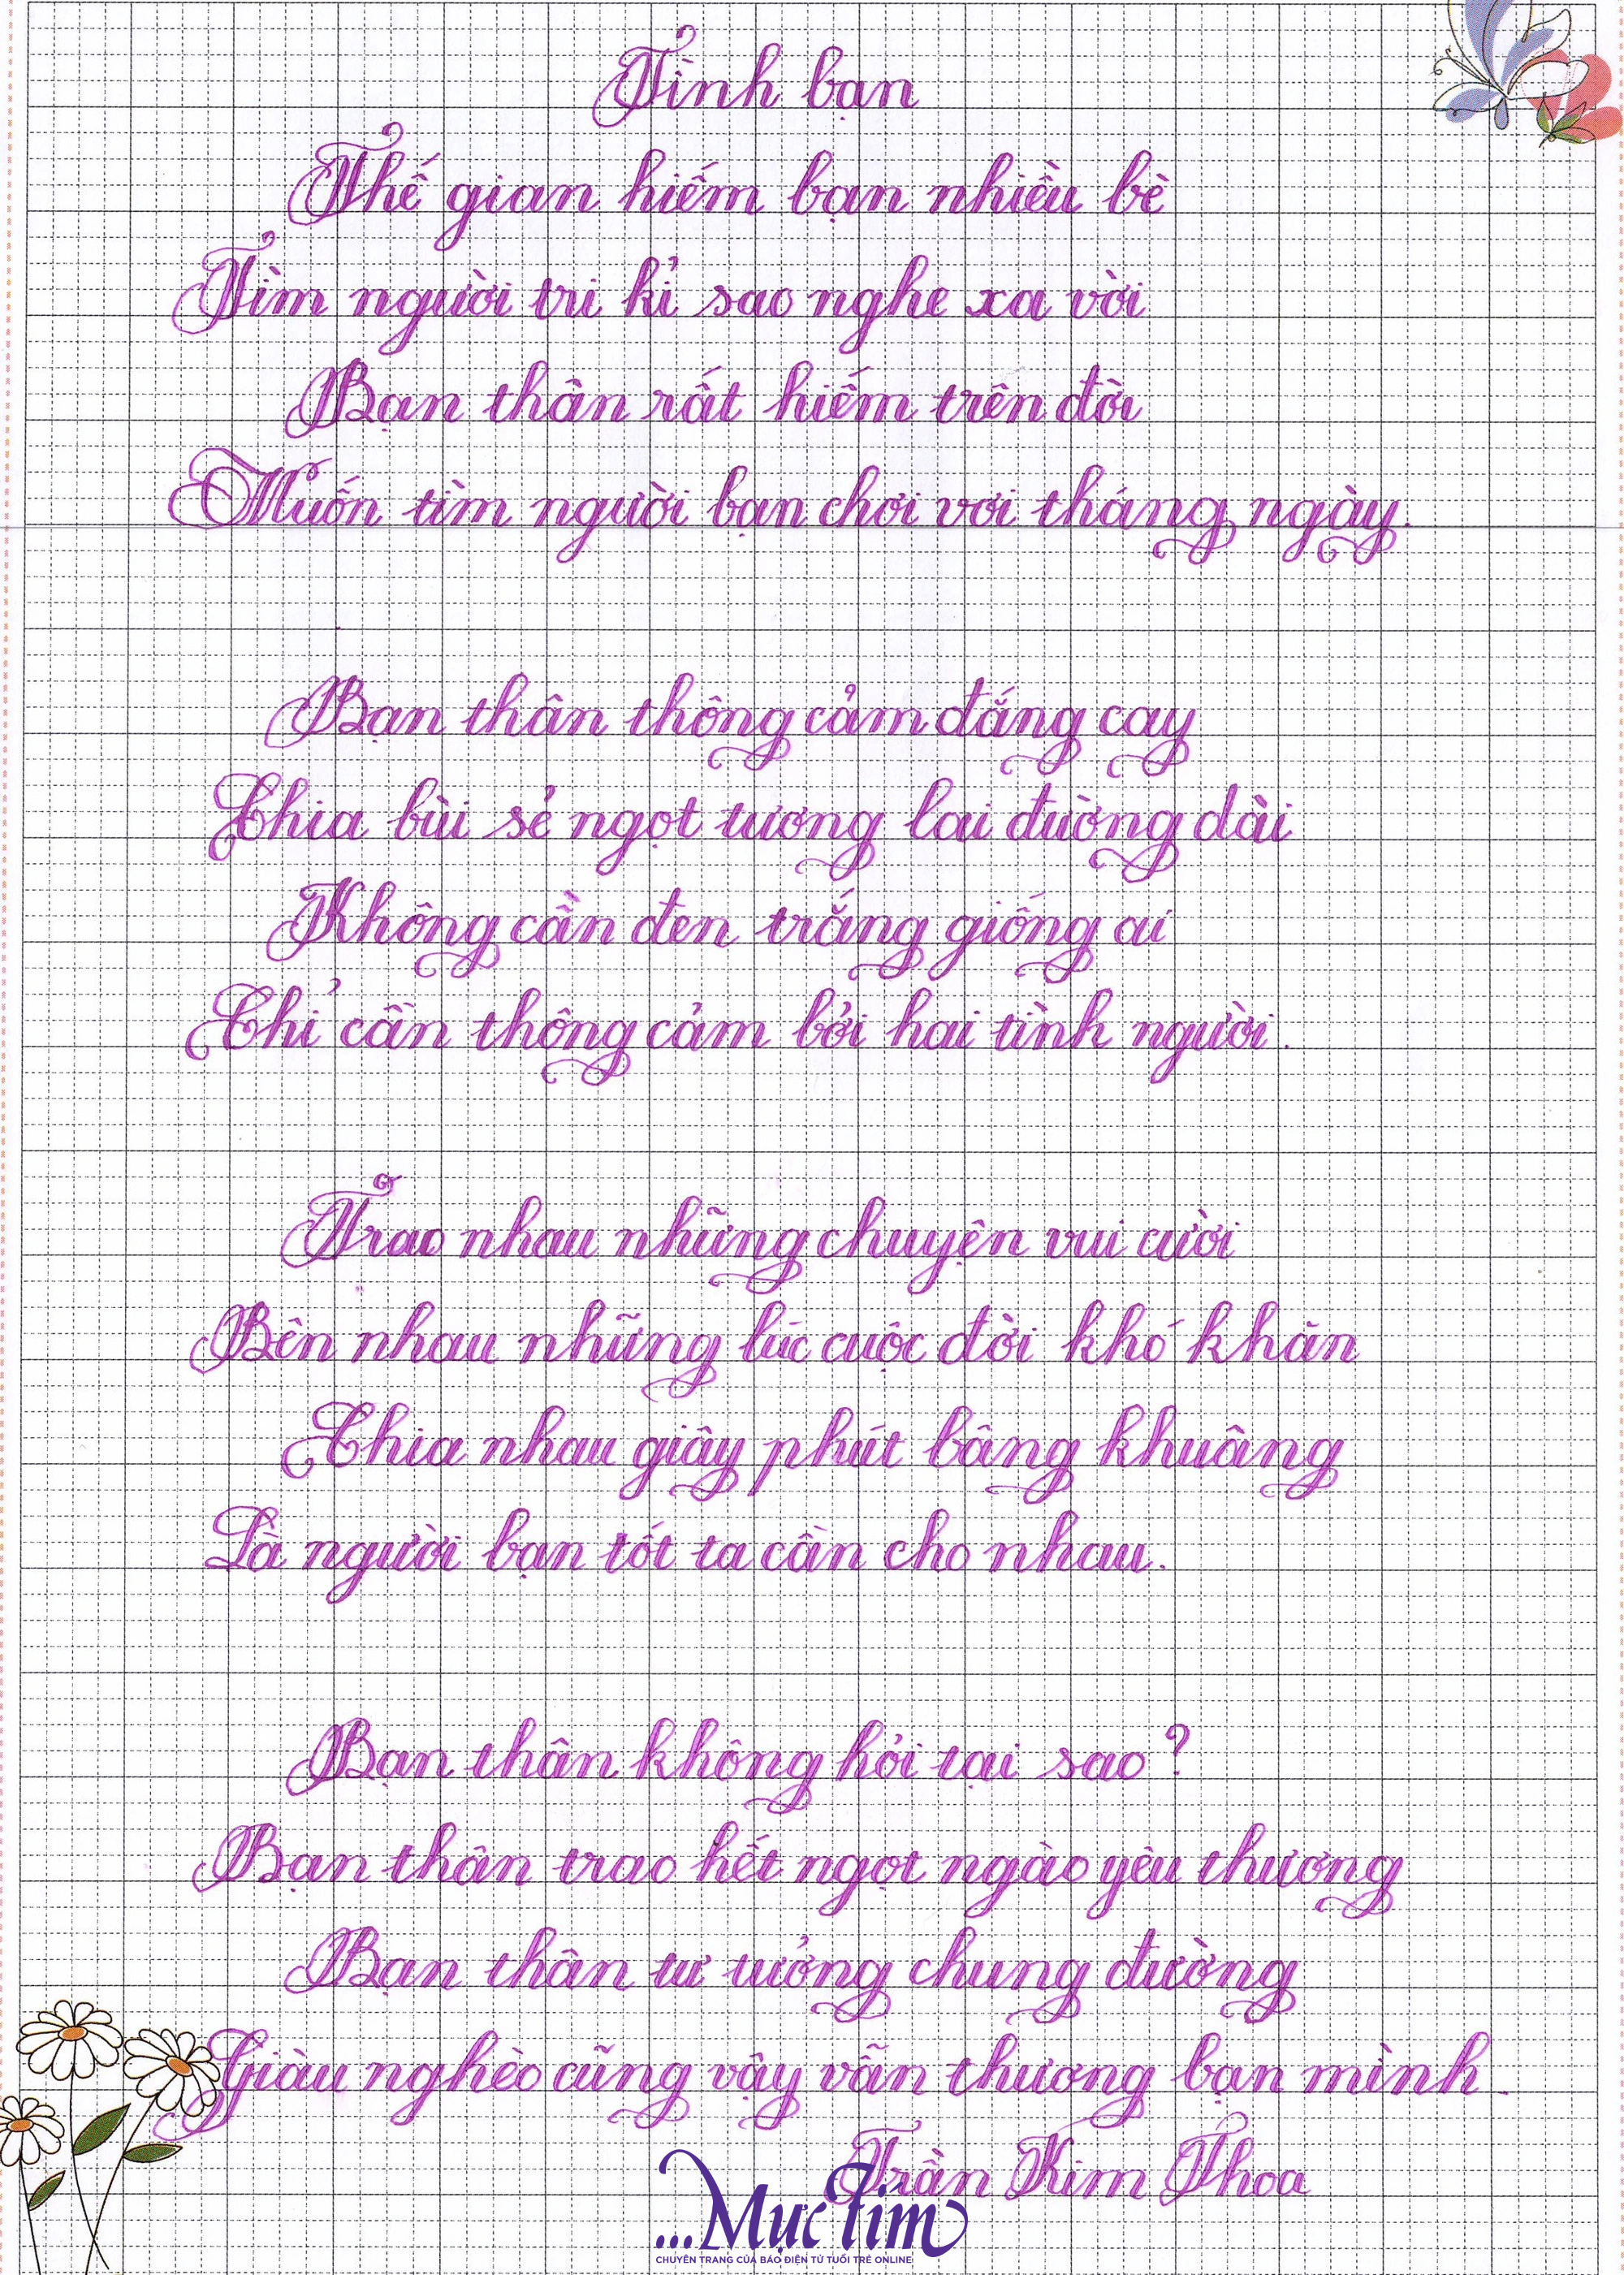 Tình bạn
Thế gian hiếm bạn nhiều bè
Tìm người tri kỉ sao nghe xa vời
Bạn thân rất hiếm trên đời
Muốn tìm người bạn chơi vơi tháng ngày.
Bạn thân thông cảm đắng cay
Chia bùi sẻ ngọt tương lai đường dài
Không cần đen trắng giống ai
Chỉ cần thông cảm bởi hai tình người.
Trao nhau những chuyện vui cười
Bên nhau những lúc cuộc đời khó khăn
Chia nhau giây phút bâng khuâng
Là người bạn tốt ta cần cho nhau.
Bạn thân không hỏi tại sao?
Bạn thân trao hết ngọt ngào yêu thương
Bạn thân tư tưởng chung đường
Giàu nghèo cũng vậy vẫn thương bạn mình.
Trần Kim Thoa
...Mực Tím
CHUYÊN TRANG CỦA BÁO ĐIỆN TỬ TUỔI TRẺ ONLINE